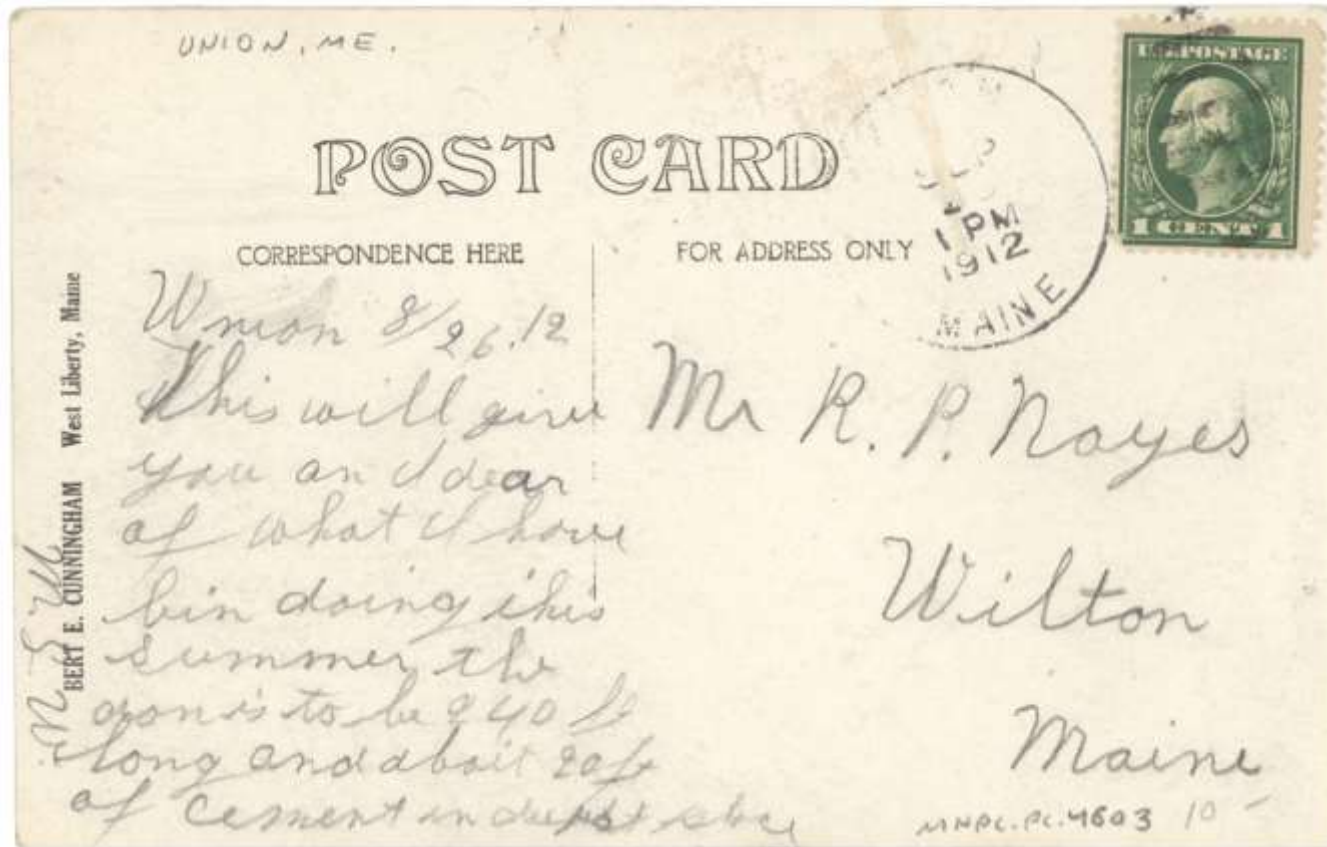 UNION, ME.
POST CARD
CORRESPONDENCE HERE
FOR ADDRESS ONLY
U.S. POSTAGE
1 CENT 1
1 PM
1912
MAINE
BERT E. CUNNINGHAM West Liberty, Maine
Union 8/26.12
This will give
you an Idear
of what I have
bin doing this
summer the
is to be 240 ft
long and about 20 ft
of cement in
Mr R. P. Noyes
Wilton
Maine
MHPC.PC.4603 10